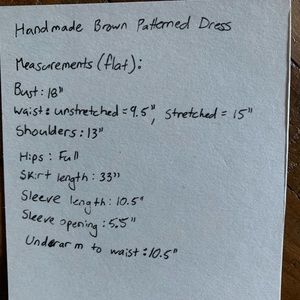 Handmade Brown Patterned Dress
Measurements (flat):
Bust: 18"
Waist: unstretched = 9.5", stretched = 15"
Shoulders: 13"
Hips: Full
Skirt length: 33"
Sleeve length: 10.5"
Sleeve opening: 5.5"
Underarm to waist: 10.5"